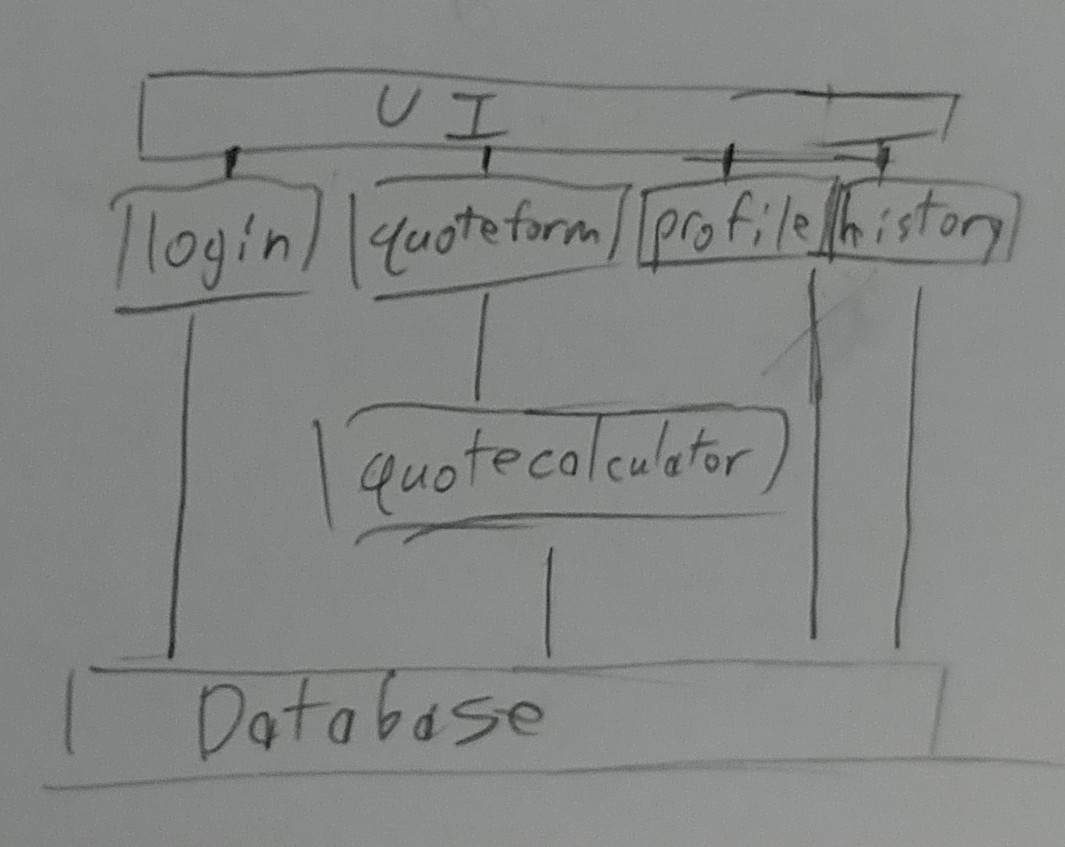 UI
login quoteform profile history
quotecalculator
Database